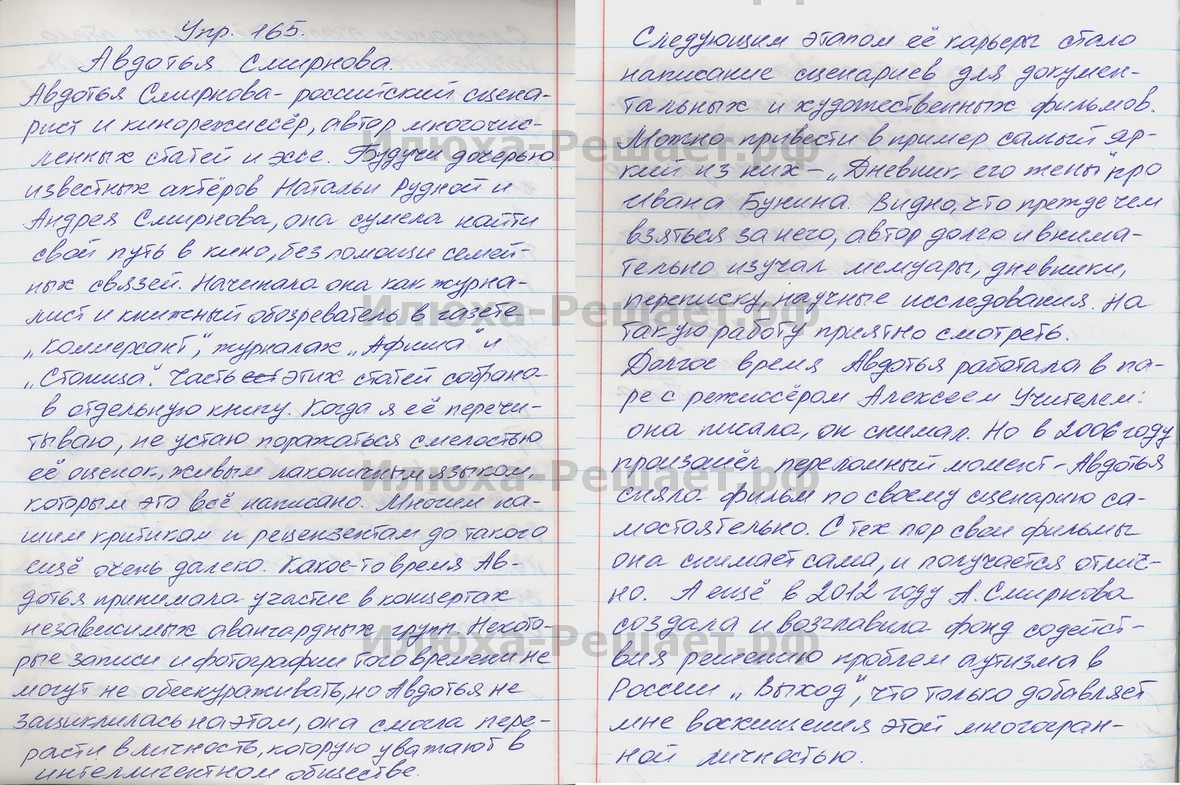 Упр. 165.
Авдотья Смирнова.
Авдотья Смирнова - российский сцена-
рист и кинорежиссёр, автор многочис-
ленных статей и эссе. Будучи дочерью
известных актёров Натальи Рудной и
Андрея Смирнова, она сумела найти
свой путь в кино, без помощи семей-
ных связей. Начинала она как журна-
лист и книжный обозреватель в газете
„Коммерсант“, журналах „Афиша“ и
„Столица“. Часть этих статей собрана
в отдельную книгу. Когда я её перечи-
тываю, не устаю поражаться смелостью
её оценок, живым лаконичным языком,
которым это всё написано. Многим на-
шим критикам и рецензентам до такого
ещё очень далеко. Какое-то время Ав-
дотья принимала участие в концертах
независимых авангардных групп. Некото-
рые записи и фотографии того времени не
могут не обескураживать, но Авдотья не
зациклилась на этом, она смогла пере-
расти в личность, которую уважают в
интеллигентном обществе.
Следующим этапом её карьеры стало
написание сценариев для докумен-
тальных и художественных фильмов.
Можно привести в пример самый яр-
кий из них - „Дневник его жены“ про
Ивана Бунина. Видно, что прежде чем
взяться за него, автор долго и внима-
тельно изучал мемуары, дневники,
переписку, научные исследования. На
такую работу приятно смотреть.
Долгое время Авдотья работала в па-
ре с режиссёром Алексеем Учителем:
она писала, он снимал. Но в 2006 году
произошёл переломный момент - Авдотья
сняла фильм по своему сценарию са-
мостоятельно. С тех пор свои фильмы
она снимает сама, и получается отлич-
но. А ещё в 2012 году А. Смирнова
создала и возглавила фонд содейст-
вия решению проблем аутизма в
России „Выход“, что только добавляет
мне восхищения этой многогран-
ной личностью.
Илюха-Решает.рф
Илюха-Решает.рф
Илюха-Решает.рф
Илюха-Решает.рф